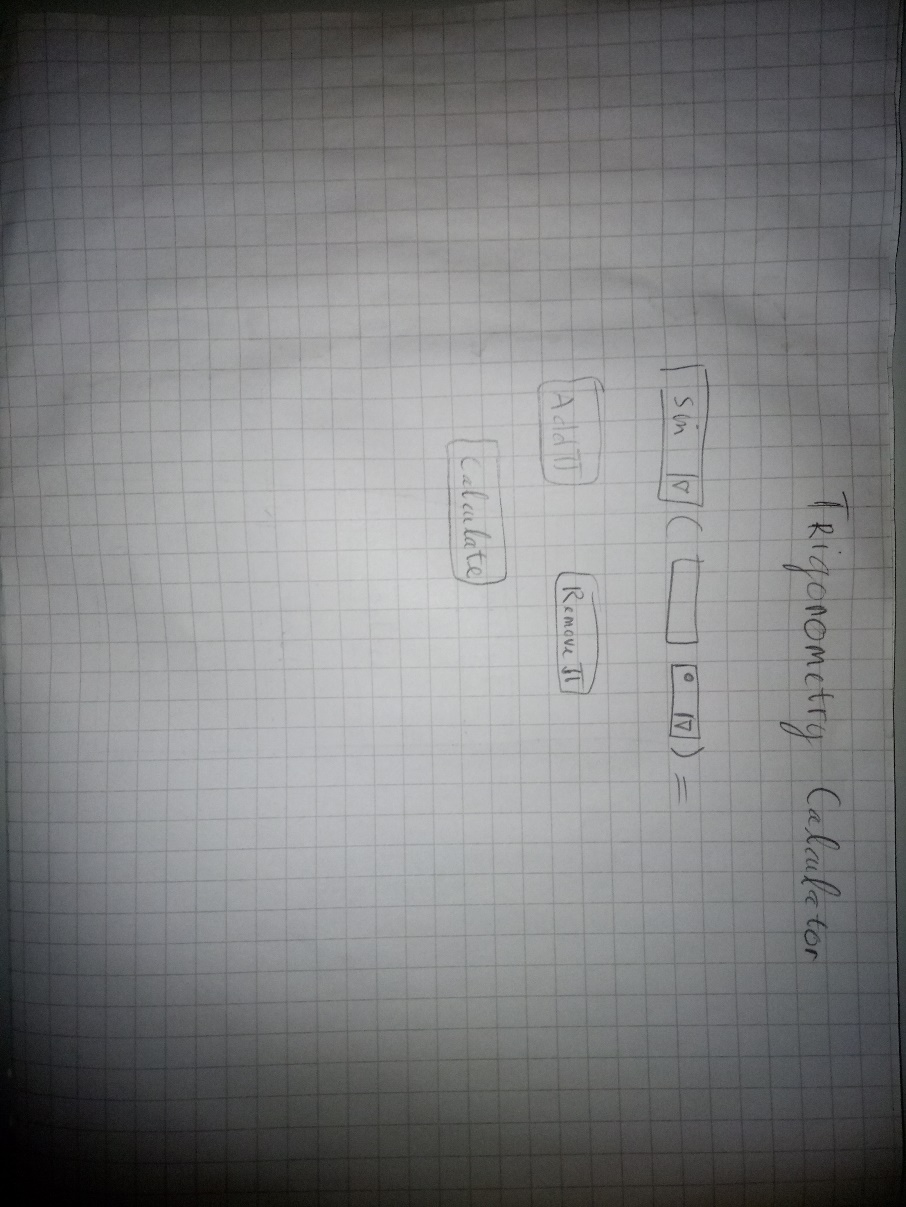 TRigonometry Calculator
sin ▽ ( ° ▽ ) =
Add π Remove π
Calculate